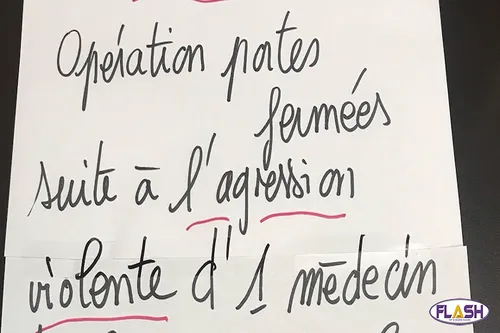 Opération portes
fermées
suite à l'agression
violente d'1 médecin
FLASH